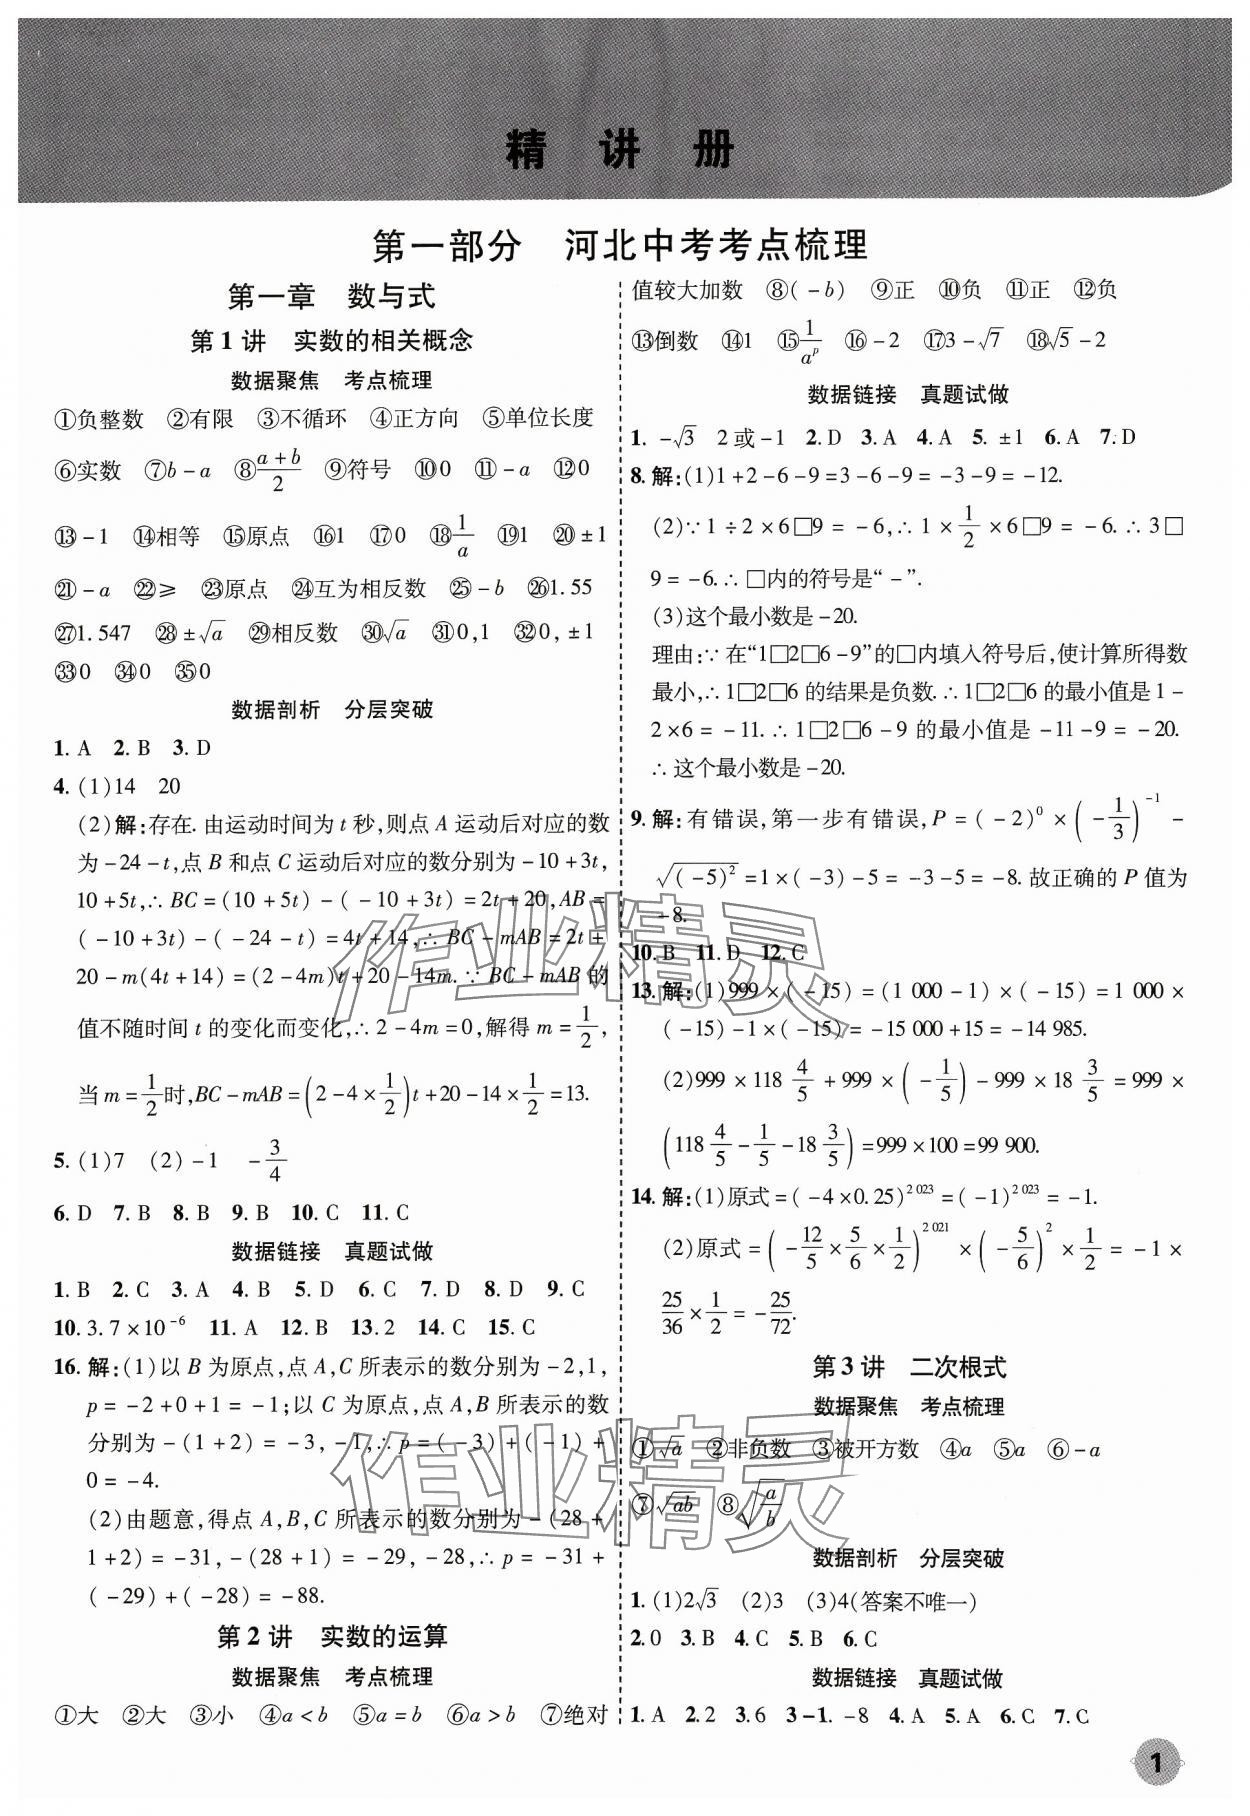 精 讲 册
第一部分 河北中考考点梳理
第一章 数与式
第1讲 实数的相关概念
数据聚焦 考点梳理
①负整数 ②有限 ③不循环 ④正方向 ⑤单位长度
⑥实数 ⑦b-a ⑧(a+b)/2 ⑨符号 ⑩0 ⑪-a ⑫0
⑬-1 ⑭相等 ⑮原点 ⑯1 ⑰0 ⑱1/a ⑲1 ⑳±1
㉑-a ㉒≥ ㉓原点 ㉔互为相反数 ㉕-b ㉖1.55
㉗1.547 ㉘±√a ㉙相反数 ㉚√a ㉛0,1 ㉜0,±1
㉝0 ㉞0 ㉟0
数据剖析 分层突破
1. A 2. B 3. D
4. (1)14 20
(2)解:存在. 由运动时间为 t 秒,则点 A 运动后对应的数
为-24-t,点 B 和点 C 运动后对应的数分别为-10+3t,
10+5t,∴BC=(10+5t)-(-10+3t)=2t+20,AB=
(-10+3t)-(-24-t)=4t+14,∴BC-mAB=2t+
20-m(4t+14)=(2-4m)t+20-14m.∵BC-mAB 的
值不随时间 t 的变化而变化,∴2-4m=0,解得 m=1/2,
当 m=1/2时,BC-mAB=(2-4×1/2)t+20-14×1/2=13.
5. (1)7 (2)-1 -3/4
6. D 7. B 8. B 9. B 10. C 11. C
数据链接 真题试做
1. B 2. C 3. A 4. B 5. D 6. C 7. D 8. D 9. C
10. 3.7×10⁻⁶ 11. A 12. B 13. 2 14. C 15. C
16. 解:(1)以 B 为原点,点 A,C 所表示的数分别为-2,1,
p=-2+0+1=-1;以 C 为原点,点 A,B 所表示的数
分别为-(1+2)=-3,-1,∴p=(-3)+(-1)+
0=-4.
(2)由题意,得点 A,B,C 所表示的数分别为-(28+
1+2)=-31,-(28+1)=-29,-28,∴p=-31+
(-29)+(-28)=-88.
第2讲 实数的运算
数据聚焦 考点梳理
①大 ②大 ③小 ④a<b ⑤a=b ⑥a>b ⑦绝对
值较大加数 ⑧(-b) ⑨正 ⑩负 ⑪正 ⑫负
⑬倒数 ⑭1 ⑮1/aᵖ ⑯-2 ⑰3-√7 ⑱√5-2
数据链接 真题试做
1. -√3 2或-1 2. D 3. A 4. A 5. ±1 6. A 7. D
8. 解:(1)1+2-6-9=3-6-9=-3-9=-12.
(2)∵1÷2×6□9=-6,∴1×1/2×6□9=-6.∴3□
9=-6.∴□内的符号是“-”.
(3)这个最小数是-20.
理由:∵在“1□2□6-9”的□内填入符号后,使计算所得数
最小,∴1□2□6 的结果是负数.∴1□2□6 的最小值是 1-
2×6=-11.∴1□2□6-9 的最小值是-11-9=-20.
∴这个最小数是-20.
9. 解:有错误,第一步有错误,P=(-2)⁰×(-1/3)⁻¹-
√(-5)²=1×(-3)-5=-3-5=-8. 故正确的 P 值为
-8.
10. B 11. D 12. C
13. 解:(1)999×(-15)=(1 000-1)×(-15)=1 000×
(-15)-1×(-15)=-15 000+15=-14 985.
(2)999×118 4/5+999×(-1/5)-999×18 3/5=999×
(118 4/5-1/5-18 3/5)=999×100=99 900.
14. 解:(1)原式=(-4×0.25)²⁰²³=(-1)²⁰²³=-1.
(2)原式=(-12/5×5/6×1/2)²⁰²¹×(-5/6)²×1/2=-1×
25/36×1/2=-25/72.
第3讲 二次根式
数据聚焦 考点梳理
①√a ②非负数 ③被开方数 ④a ⑤a ⑥-a
⑦√ab ⑧√(a/b)
数据剖析 分层突破
1. (1)2√3 (2)3 (3)4(答案不唯一)
2. 0 3. B 4. C 5. B 6. C
数据链接 真题试做
1. A 2. 2 3. 6 3-1. -8 4. A 5. A 6. C 7. C
作业精灵
作业精灵
1